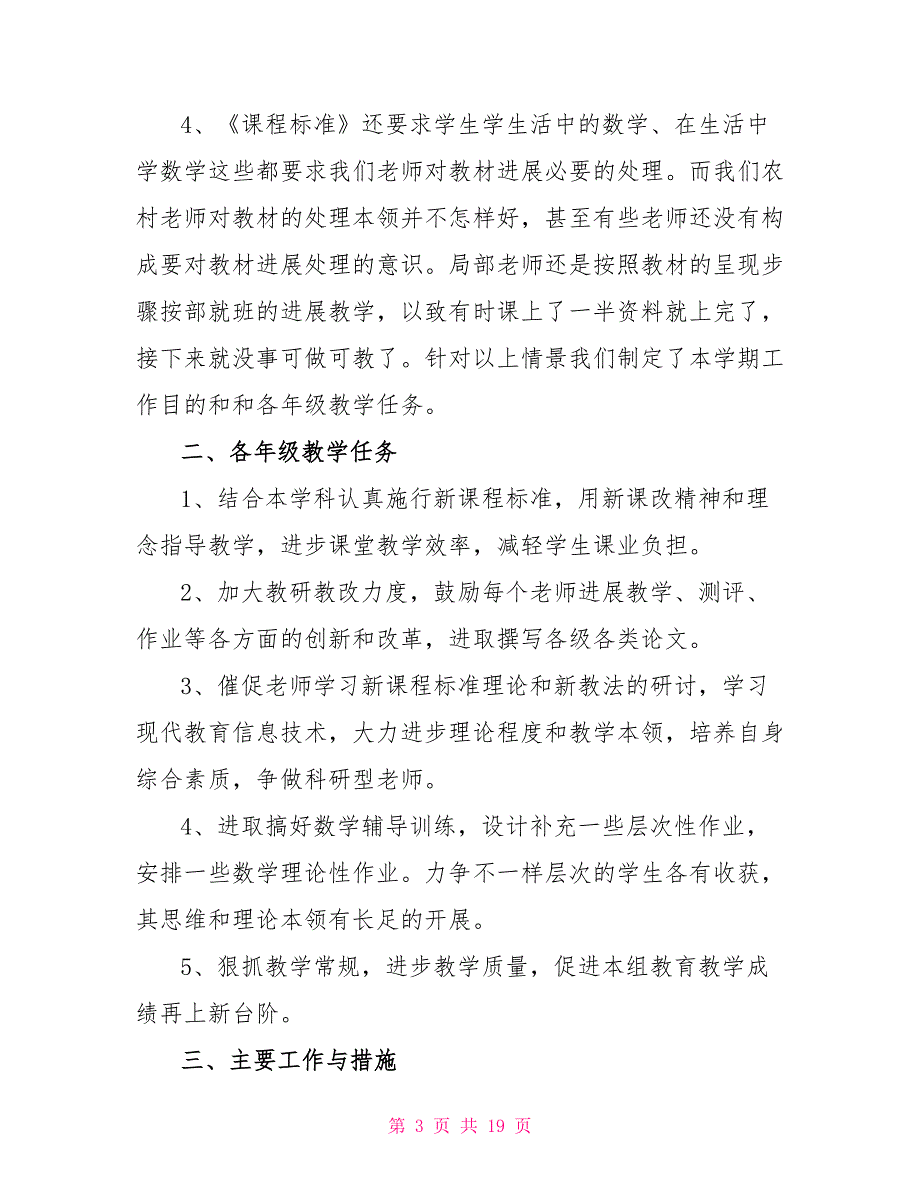 4、《课程标准》还要求学生学生活中的数学、在生活中
学数学这些都要求我们老师对教材进展必要的处理。而我们农
村老师对教材的处理本领并不怎样好，甚至有些老师还没有构
成要对教材进展处理的意识。局部老师还是按照教材的呈现步
骤按部就班的进展教学，以致有时课上了一半资料就上完了，
接下来就没事可做可教了。针对以上情景我们制定了本学期工
作目的和和各年级教学任务。
二、各年级教学任务
1、结合本学科认真施行新课程标准，用新课改精神和理
念指导教学，进步课堂教学效率，减轻学生课业负担。
2、加大教研教改力度，鼓励每个老师进展教学、测评、
作业等各方面的创新和改革，进取撰写各级各类论文。
3、催促老师学习新课程标准理论和新教法的研讨，学习
现代教育信息技术，大力进步理论程度和教学本领，培养自身
综合素质，争做科研型老师。
4、进取搞好数学辅导训练，设计补充一些层次性作业，
安排一些数学理论性作业。力争不一样层次的学生各有收获，
其思维和理论本领有长足的开展。
5、狠抓教学常规，进步教学质量，促进本组教育教学成
绩再上新台阶。
三、主要工作与措施
第 3 页 共 19 页